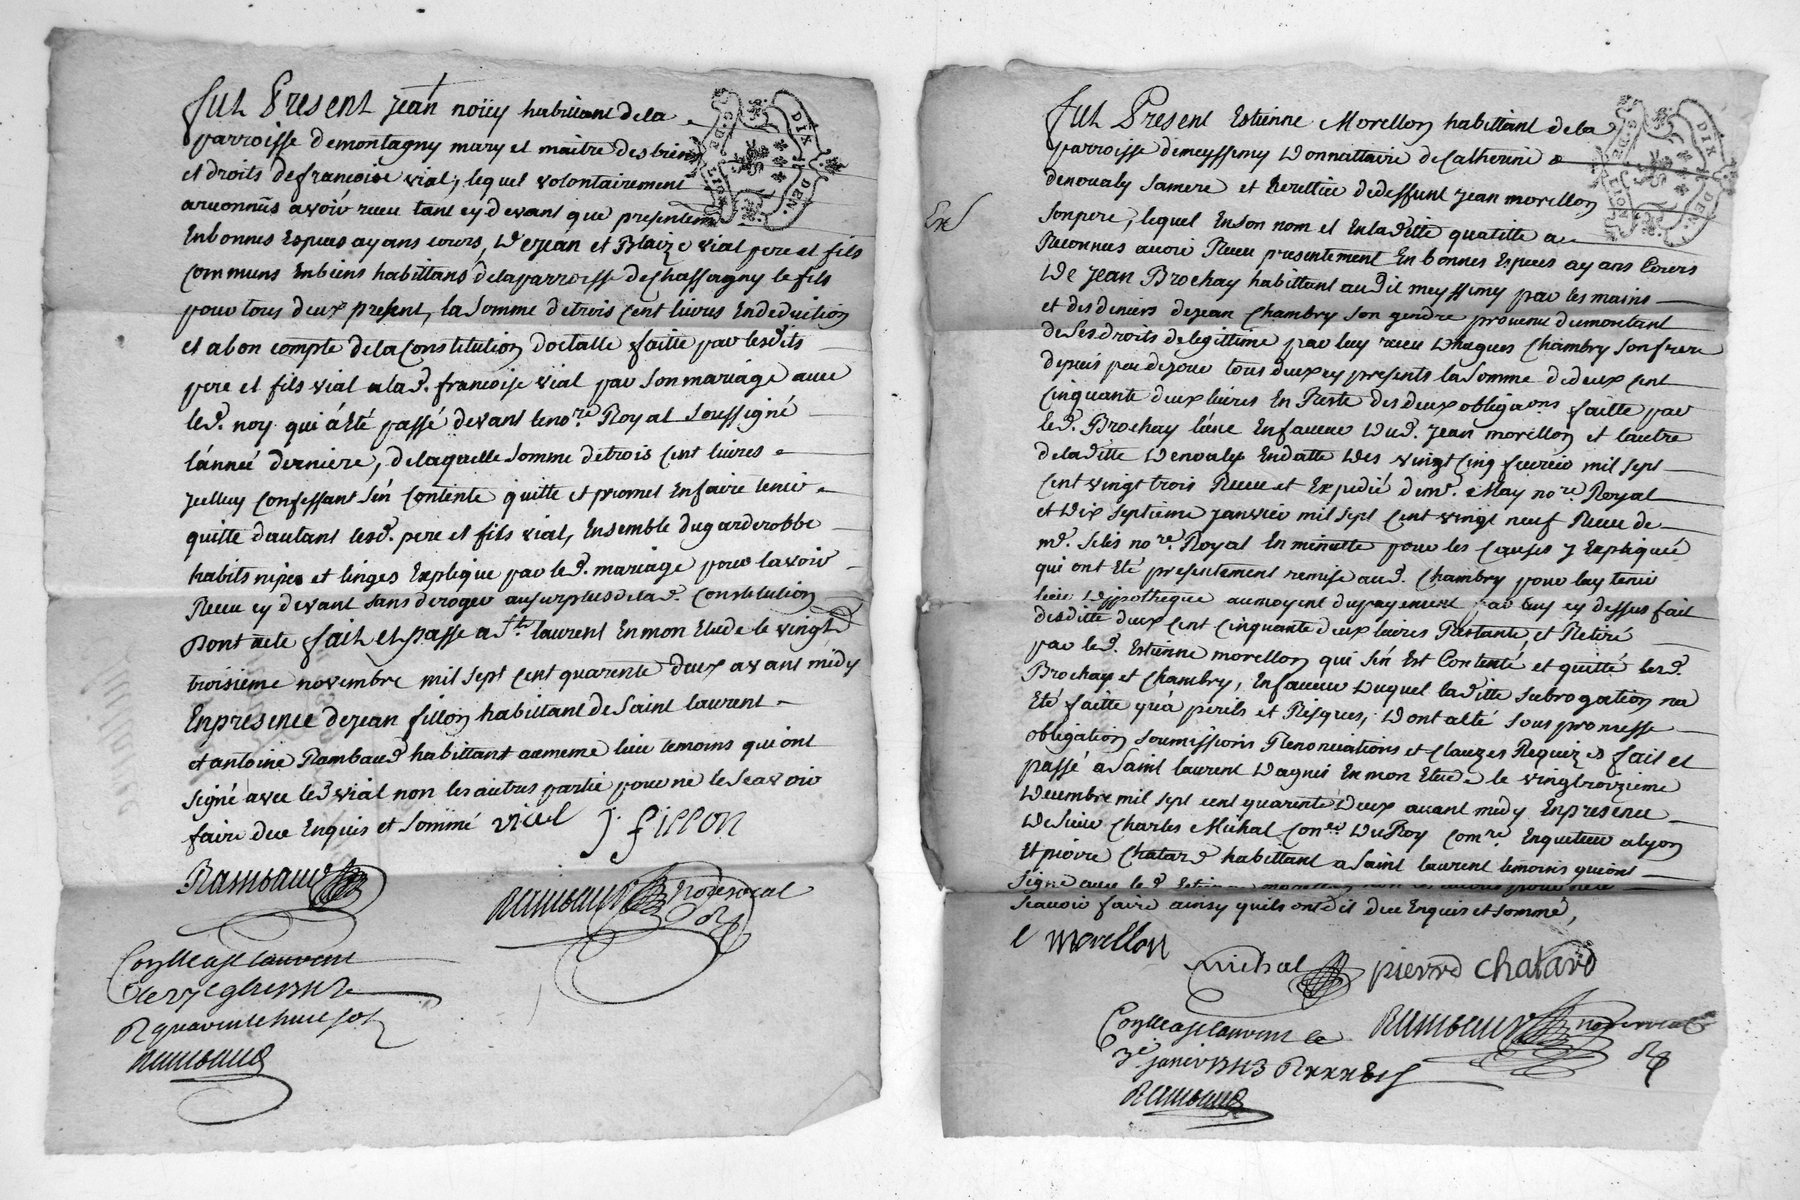 fut Present Jean noüy habittant de la
parroisse de montagny mary et maitre des biens
et droits de francoise vial, lequel volontairement
a reconnüs avoir receu tant cy devant que presentement
En bonnes Especes ayans cours, De Jean et Blaize vial pere et fils
communs En biens habittans de la parroisse de Chassagny le fils
pour tous deux present, la somme de trois cent livres En deduction
et a bon compte de la Constitution dottalle faitte par lesdits
pere et fils vial a la d. francoise vial par son mariage avec
le d. noy qui á été passé devant le no.re Royal Soussigné
lánneé derniere, de laquelle somme de trois cent livres
Jcelluy Confessant s'én contente quitte et promet En faire tenir
quitte d'autant les d. pere et fils vial, Ensemble du garderobbe
habits nipes et linges Expliqué par le d. mariage pour lavoir
Receu cy devant sans deroger au surplus de la d. Constitution
Dont acte fait et passé a St. laurent En mon Etude le vingt
troisieme novembre mil sept cent quarente deux avant midy
En presence de Jean fillon habittant de Saint laurent
et antoine Rambaud habittant au meme lieu temoins qui ont
signé avec le d vial non les autres partie pour ne le Scavoir
faire de ce Enquis et sommé vial J. fillon
Rambaud
Rambaud No.re royal
Con.lle a St laurent
le 27e 9bre 1742
R quarente huit sol
Rambaud
DIX DEN.
G. DE LION
fut Present Estienne Morellon habittant de la
parroisse de meyssimy Donnattaire de Catherine
denoualy sa mere et heritier de deffunt Jean morellon
son pere, lequel En son nom et En la ditte qualitte a
Reconnus avoir Receu presentement En bonnes Especes ayans Cours
De Jean Brochay habittant au dit meyssimy par les mains
et des deniers de Jean Chambry son gendre provenu du montant
de Ses droits de legittime par luy receu D'hugues Chambry son frere
depuis peu de jour tous deux cy presents la somme de deux cent
Cinquante deux livres En Reste des deux obliga.ons faitte par
le d. Brochay lúne En faveur Du d. Jean morellon et lautre
de la ditte Denoaly En datte Des vingt Cinq fevrier mil sept
Cent vingt trois Receu et Expedié de m.e May no.re Royal
et Dix septieme Janvier mil sept Cent vingt neuf Receu de
m.e no.re Royal En minutte pour les Causes y Expliqueé
qui ont été presentement remise au d. Chambry pour luy tenir
lieu D'hypotheque au moyent du payement par luy cy dessus fait
des ditte deux cent Cinquante deux livres Restante, et Retiré
par le d. Estienne morellon qui s'én Est Contenté et quitté les d.
Brochay et Chambry, En faveur Duquel la ditte subrogation na
Eté faitte qu'à perils et Risques, Dont acté sous promesse
obligation soumissions Renonciations et Clauzes Requizes fait et
passé a Saint laurent Dagnis En mon Etude le vingtroizieme
Decembre mil sept cent quarente deux avant midy En presence
De Sieur Charles Michal Con.er Du Roy Com.re Enqueteur a lyon
Et pierre Chatard habittant a Saint laurent temoins qui ont
signé avec le d Estienne morellon non les autres pour ne le
Scavoir faire ainsy quils ont dit de ce Enquis et sommé,
e morellon
michal pierre chatard
Con.lle a St laurent le Rambaud no.re royal
3e janvi 1743 R
Rambaud
DIX DEN.
G. DE LION